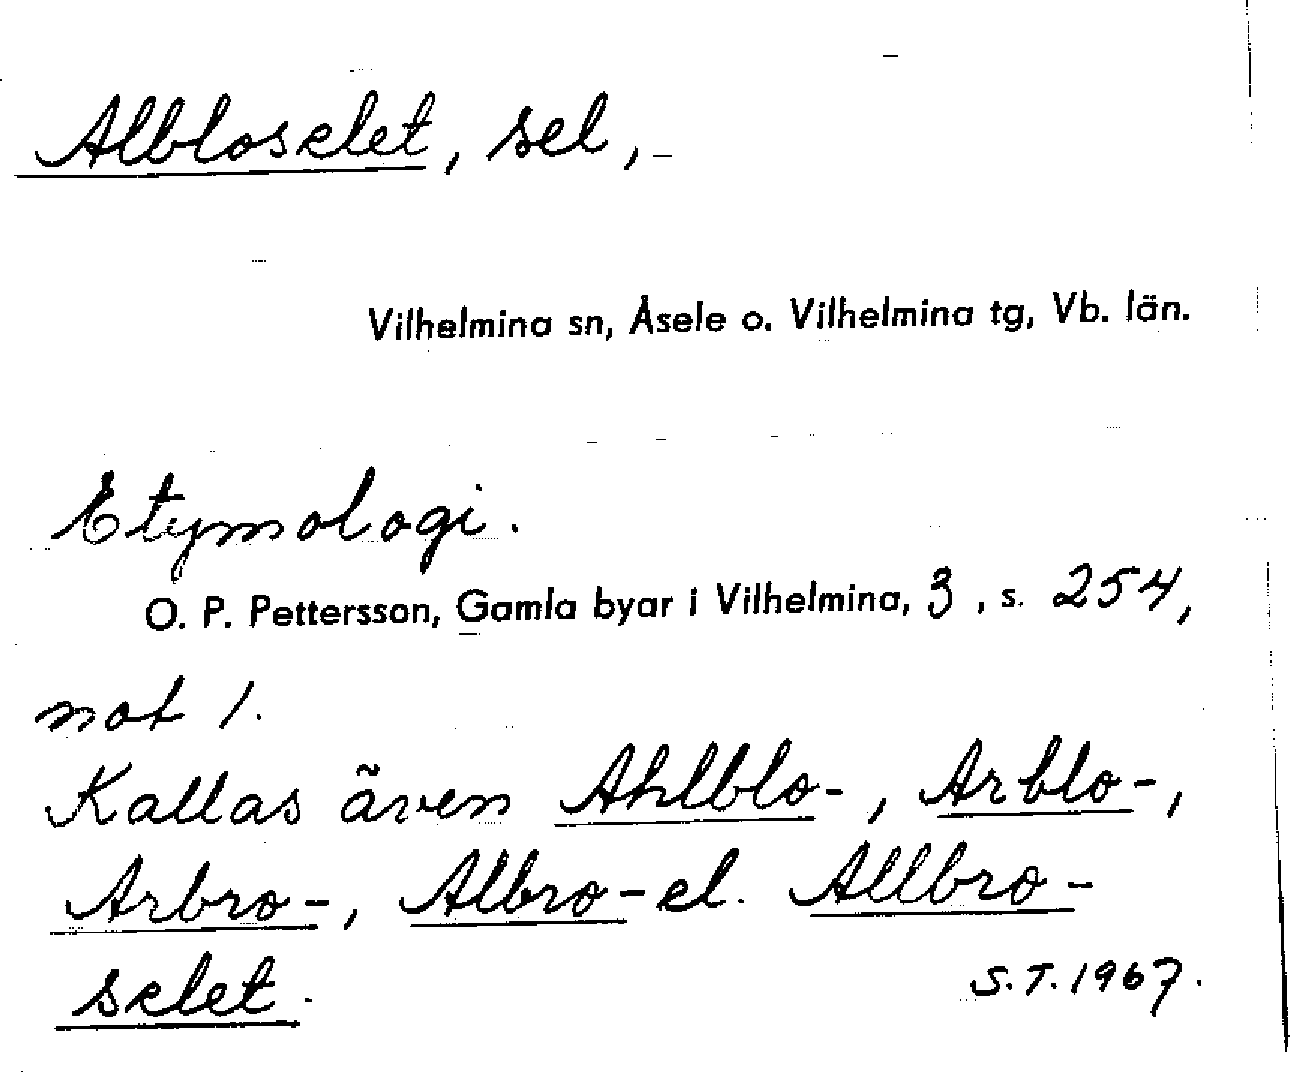 Albloselet, sel,
Vilhelmina sn, Åsele o. Vilhelmina tg, Vb. län.
Etymologi.
O. P. Pettersson, Gamla byar i Vilhelmina, 3, s. 254,
not 1.
Kallas även Ahlblo-, Arblo-,
Arbro-, Albro- el. Allbro-
selet.
S.T. 1967.